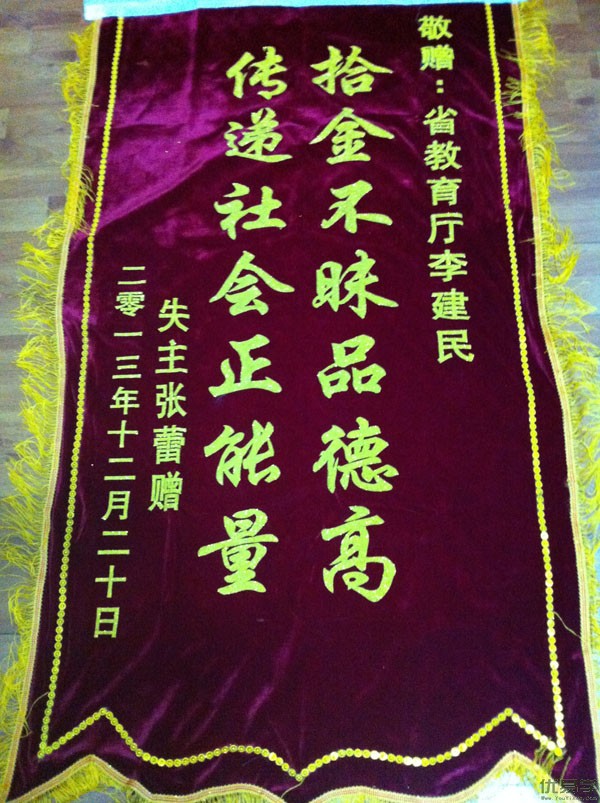 敬赠：省教育厅李建民
拾金不昧品德高
传递社会正能量
失主张蕾赠
二零一三年十二月二十日
优易学